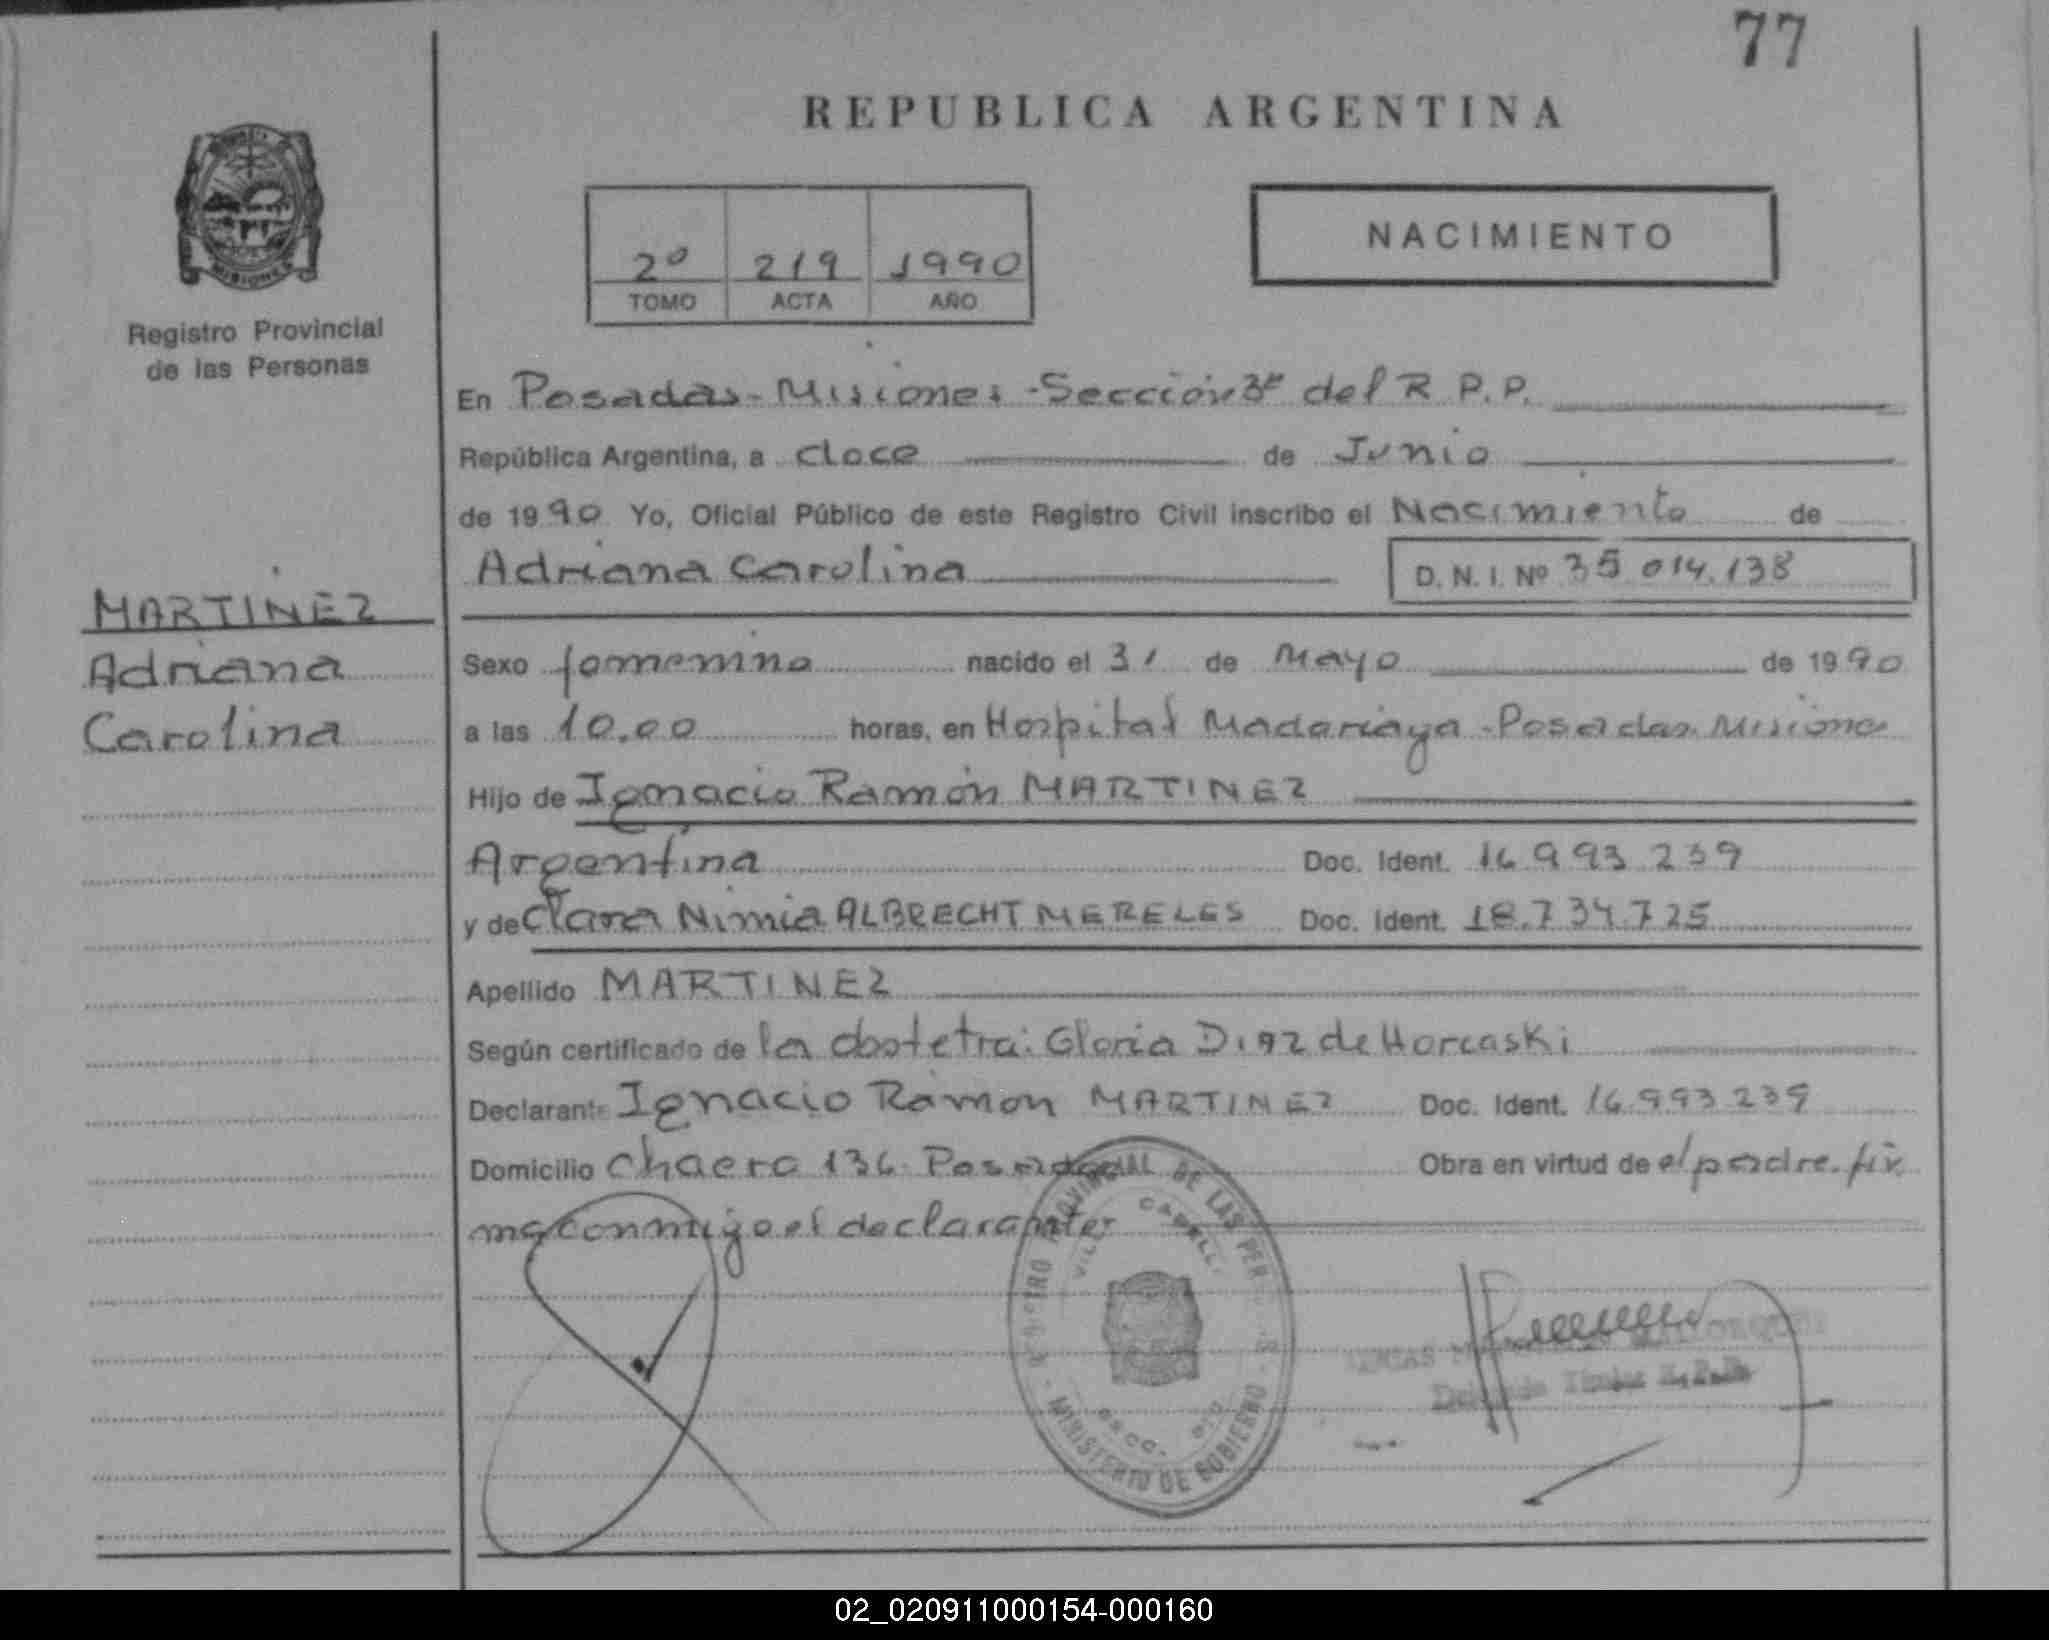 77
REPUBLICA ARGENTINA
2º 219 1990
TOMO ACTA AÑO
NACIMIENTO
MISIONES
Registro Provincial
de las Personas
En Posadas - Misiones - Sección 3ª del R.P.P.
República Argentina, a doce de Junio
de 1990 Yo, Oficial Público de este Registro Civil inscribo el Nacimiento de
Adriana Carolina D.N.I. Nº 35.014.138
MARTINEZ
Adriana
Carolina
Sexo femenino nacido el 31 de Mayo de 1990
a las 10,00 horas, en Hospital Madariaga - Posadas. Misiones
Hijo de Ignacio Ramón MARTINEZ
Argentina Doc. Ident. 16.993.239
y de Clara Nimia ALBRECHT MERELES Doc. Ident. 18.734.725
Apellido MARTINEZ
Según certificado de la obstetra: Gloria Diaz de Horcaski
Declarante Ignacio Ramón MARTINEZ Doc. Ident. 16.993.239
Domicilio 136 Posadas Obra en virtud de el padre. fir
ma conmigo el declarante
PROVINCIAL DE LAS PER
MINISTERIO DE GOBIERNO
Titular R.P.P.
02_020911000154-000160